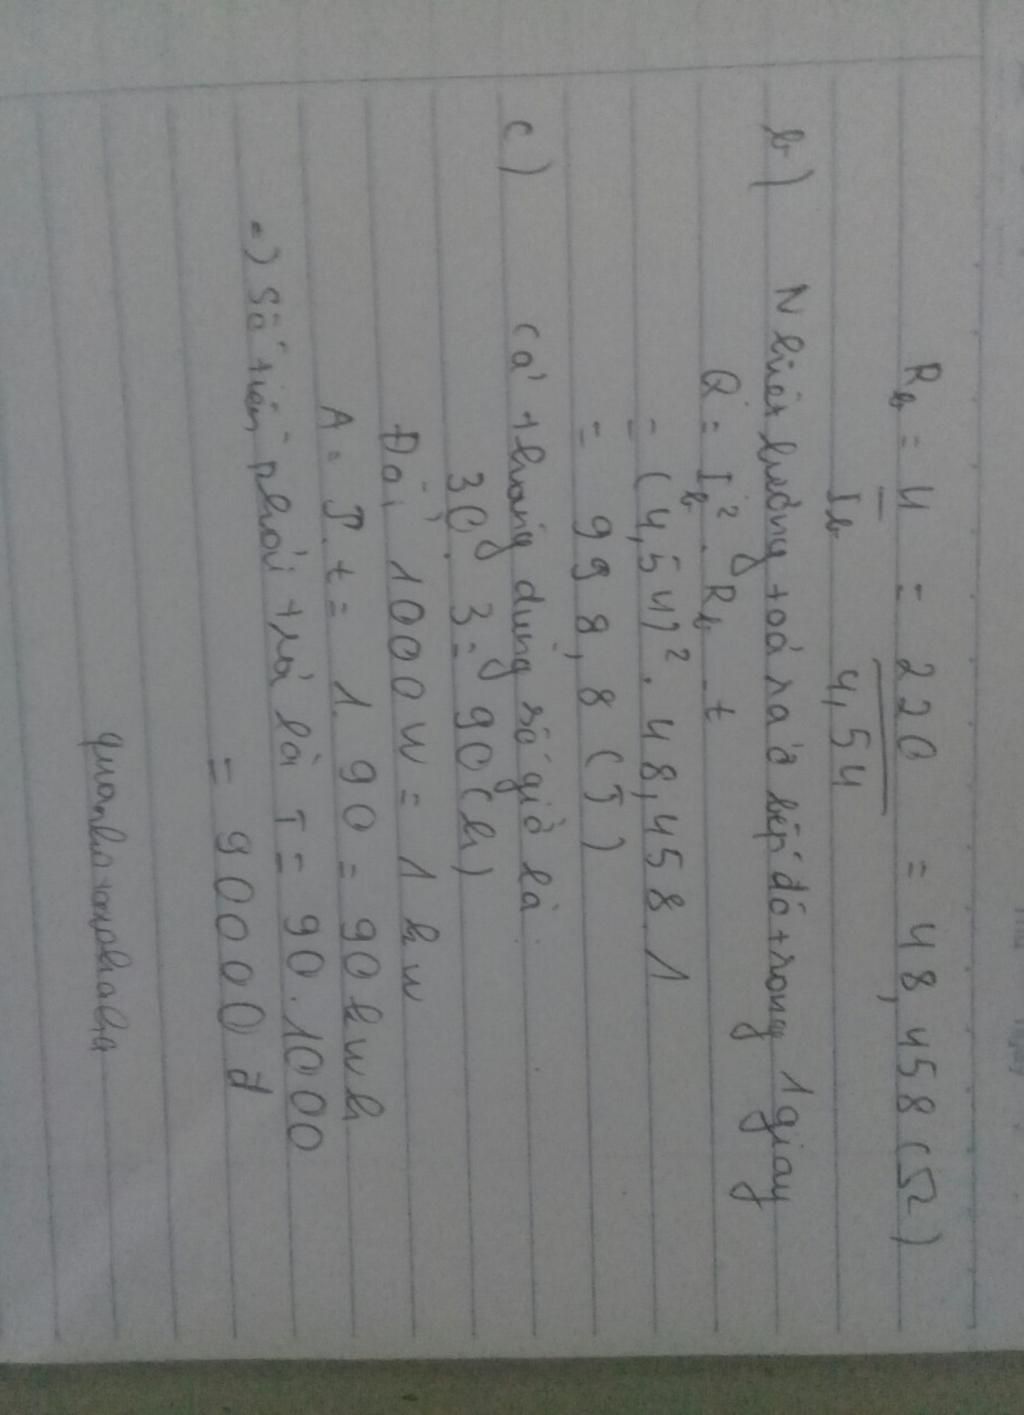 R_b = U = 220 = 48,458 (Ω)
I_b 4,54
b) Nhiệt lượng toả ra ở bếp đó trong 1 giay
Q = I_b². R_b. t
= (4,54)². 48,458. 1
= 998,8 (J)
c) Cả tháng dùng số giờ là
30. 3 = 90 (h)
Đổi 1000W = 1kw
A = P. t = 1. 90 = 90kwh
=) Số tiền phải trả là T = 90. 1000
= 90000đ